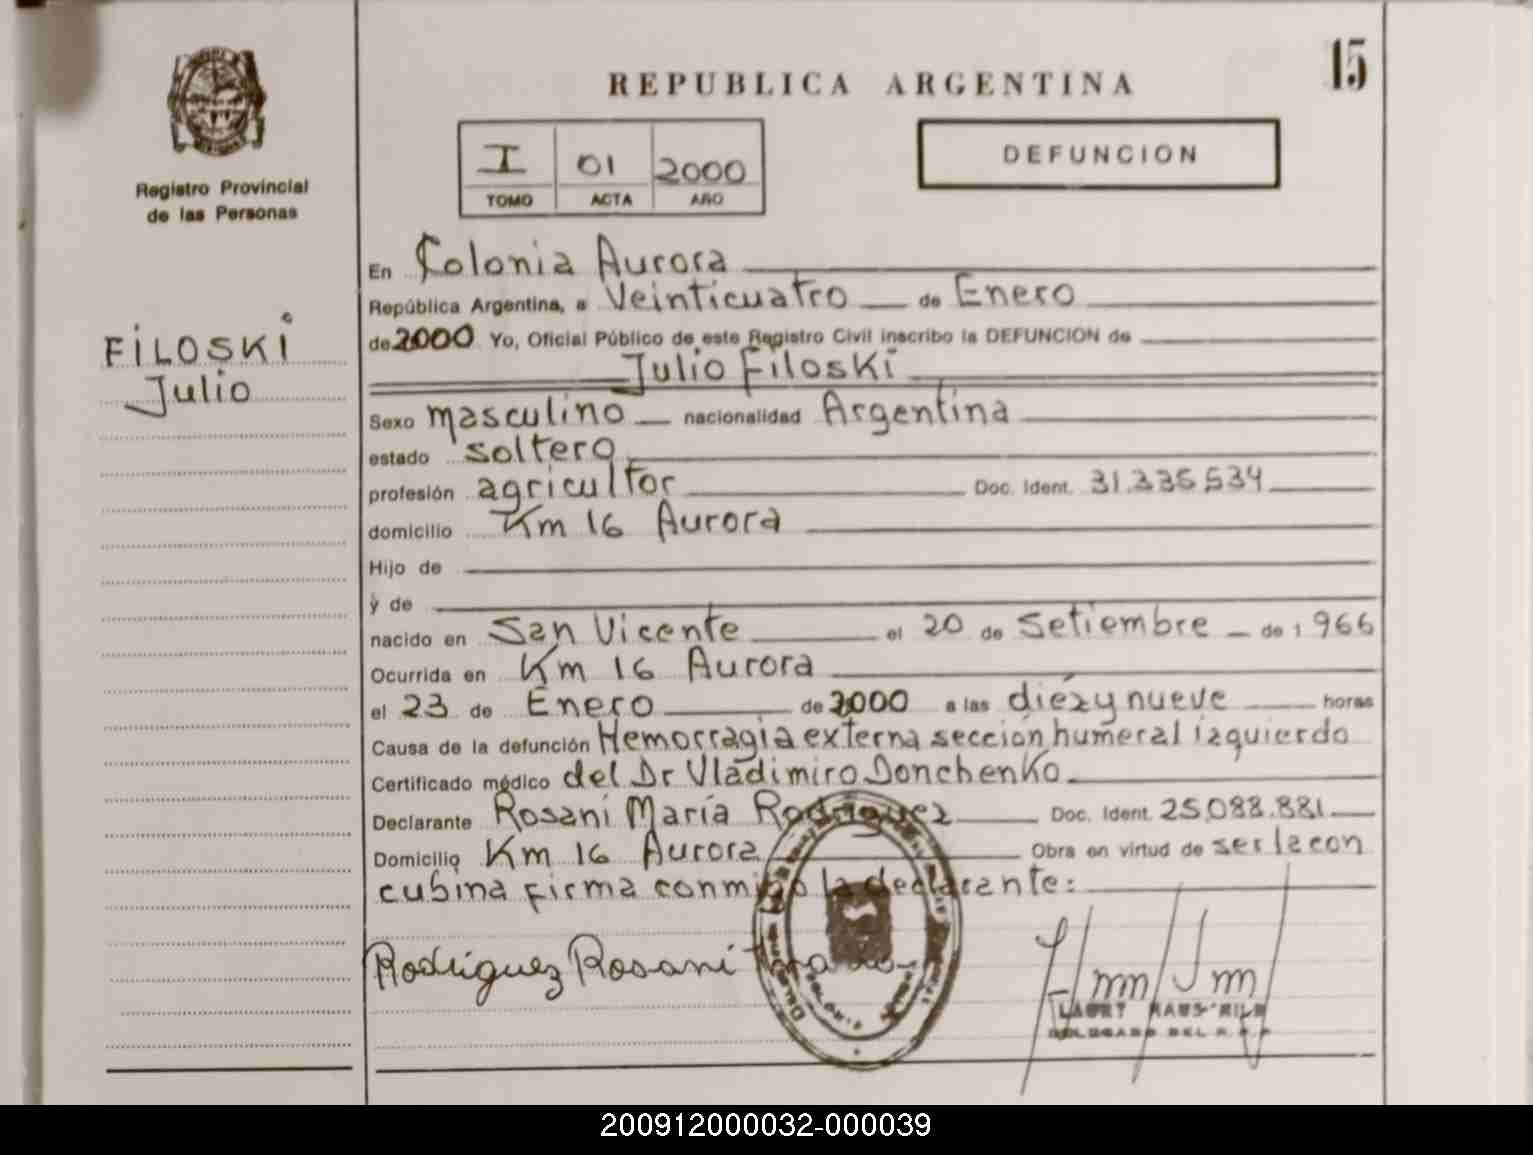 15
REPUBLICA ARGENTINA
Registro Provincial
de las Personas
I 01 2000
TOMO ACTA AÑO
DEFUNCION
FILOSKI
Julio
En Colonia Aurora
República Argentina, a Veinticuatro de Enero
de 2000 Yo, Oficial Público de este Registro Civil inscribo la DEFUNCION de
Julio Filoski
Sexo masculino nacionalidad Argentina
estado soltero
profesión agricultor Doc. Ident. 31.335.534
domicilio Km 16 Aurora
Hijo de
y de
nacido en San Vicente el 20 de Setiembre de 1966
Ocurrida en Km 16 Aurora
el 23 de Enero de 2000 a las diéz y nueve horas
Causa de la defunción Hemorragia externa sección humeral izquierdo
Certificado médico del Dr Vladimiro Donchenko
Declarante Rosani María Rodriguez Doc. Ident. 25.088.881
Domicilio Km 16 Aurora Obra en virtud de ser la con
cubina firma conmigo la declarante:
Rodriguez Rosani
DELEGADO DEL R.P.P
200912000032-000039